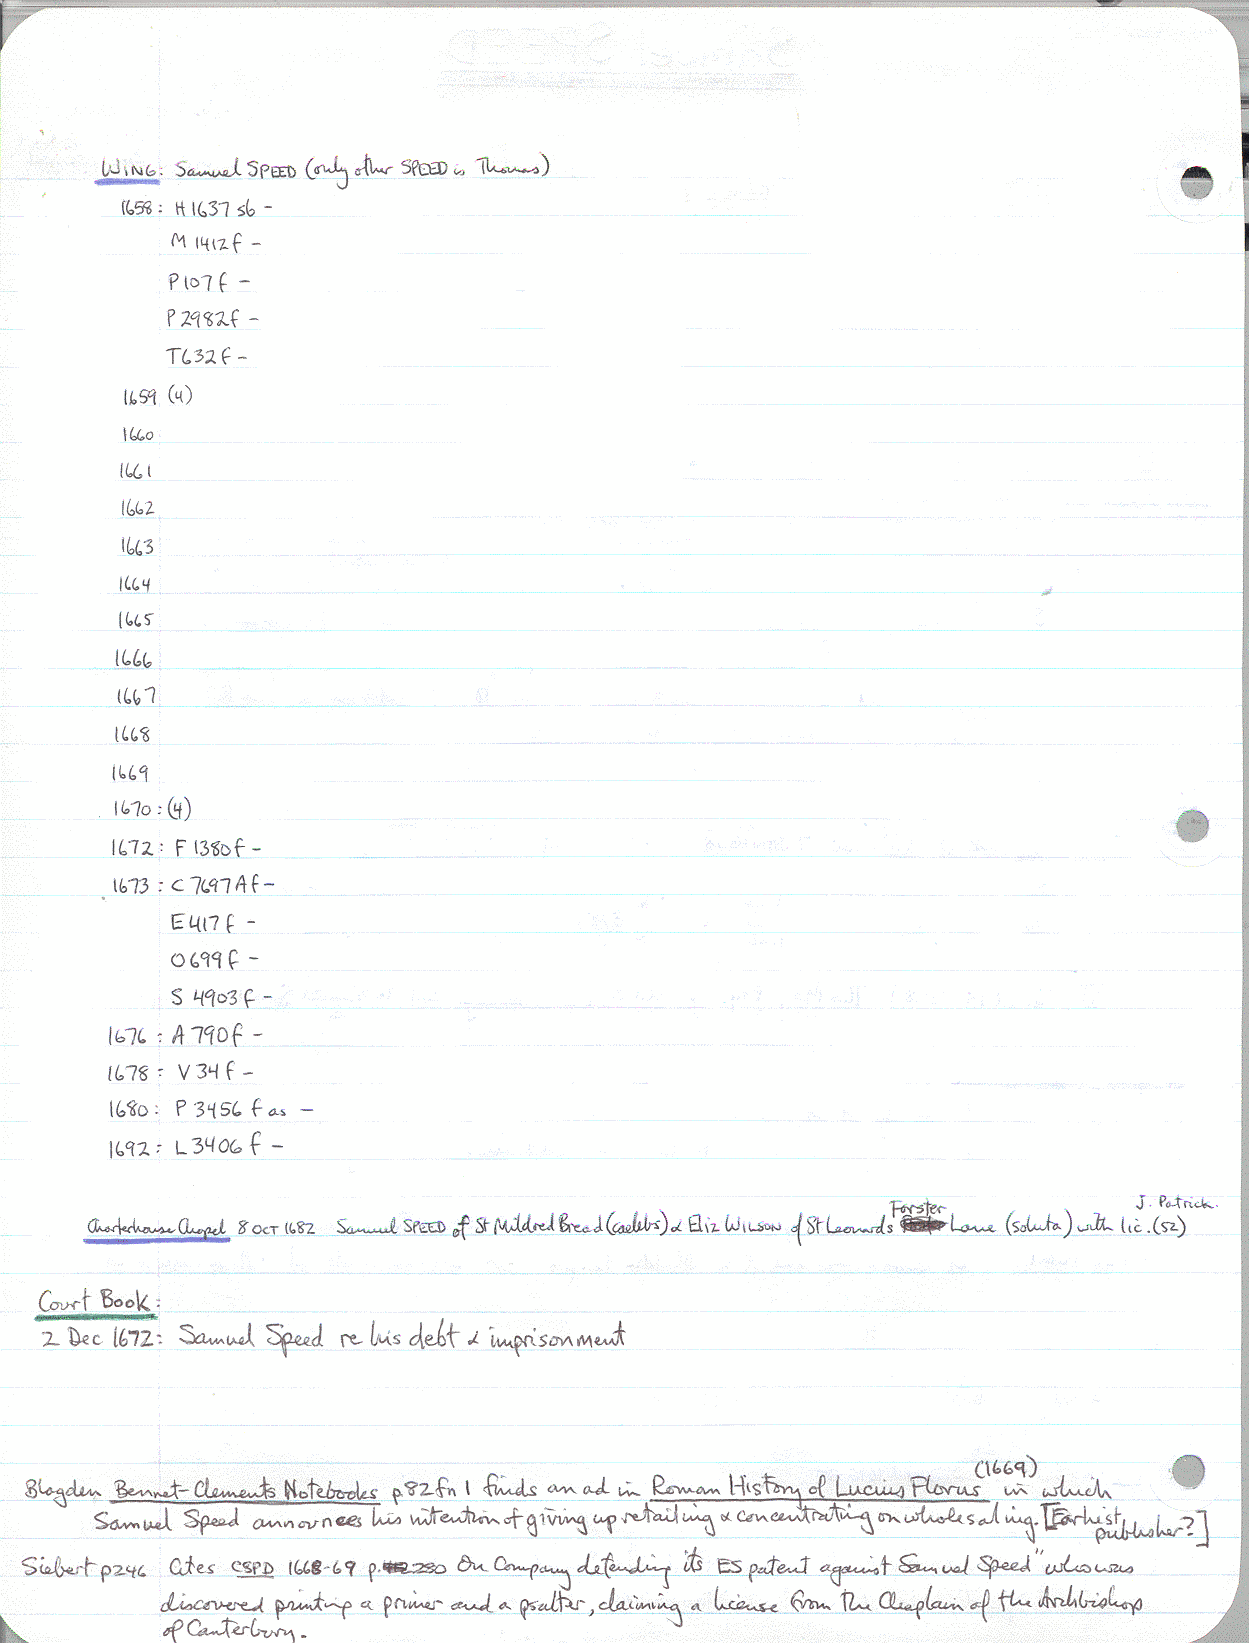 WING: Samuel SPEED (only other SPEED is Thomas)
1658: H1637 sb -
M 1412 f -
P107 f -
P 2982 f -
T632 f -
1659 (4)
1660
1661
1662
1663
1664
1665
1666
1667
1668
1669
1670: (4)
1672: F 1380 f -
1673: C 7697A f -
E417 f -
O699 f -
S 4903 f -
1676: A 790 f -
1678: V 34 f -
1680: P 3456 f as -
1692: L 3406 f -
Forster J. Patrick.
Charterhouse Chapel 8 OCT 1682 Samuel SPEED of St Mildred Bread (caelebs) & Eliz WILSON of St Leonards Lane (soluta) with lic. (52)
Court Book:
2 Dec 1672: Samuel Speed re his debt & imprisonment
(1669)
Blagden Bennet-Clements Notebooks p.82 fn 1 finds an ad in Roman History of Lucius Florus in which
Samuel Speed announces his intention of giving up retailing & concentrating on wholesaling. [Earliest
publisher?]
Siebert p246 Cites CSPD 1668-69 p. 280 On Company defending its ES patent against Samuel Speed "who was
discovered printing a primer and a psalter, claiming a license from the Chaplain of the Archbishop
of Canterbury.